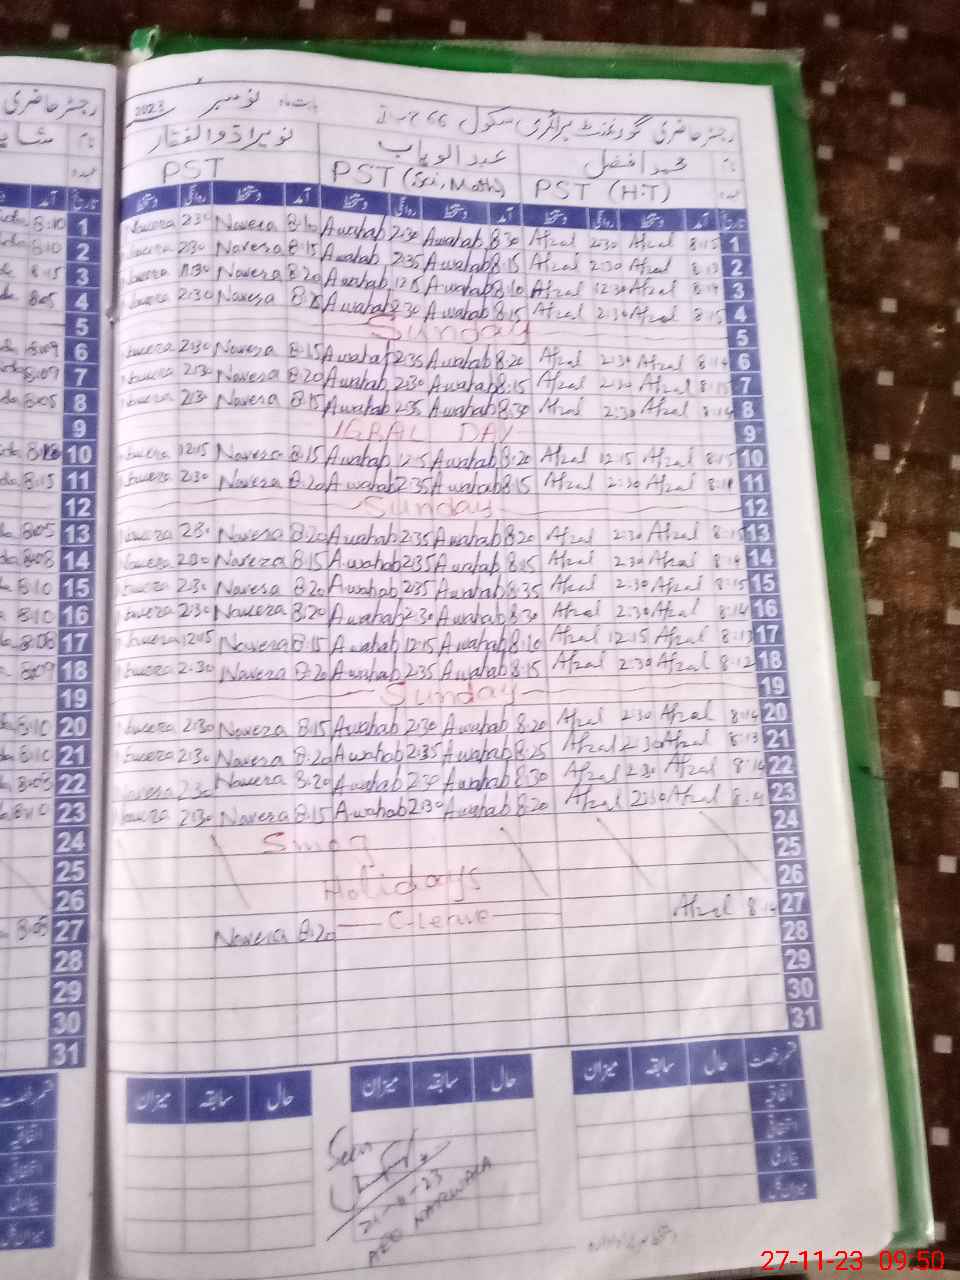 رجسٹر حاضری گورنمنٹ پرائمری سکول 66 بابت ماہ نومبر 2023
رجسٹر حاضری
نام محمد افضل عبدالوہاب نویرا ذوالفقار
نام
عہدہ PST (H.T) PST (Sci, Math) PST
تاریخ آمد دستخط روانگی دستخط آمد دستخط روانگی دستخط آمد دستخط روانگی دستخط
1 8:15 Afzal 2:30 Afzal 8:30 Awahab 2:30 Awahab 8:10 Navera 2:30 Navera
2 Afzal 2:30 Afzal 8:15 Awahab 2:35 Awahab 8:15 Navera 2:30 Navera
3 Afzal 12:30 Afzal 8:10 Awahab 12:15 Awahab 8:20 Navera Navera
4 8:15 Afzal 2:30 Afzal 8:15 Awahab 2:30 Awahab Navera 2:30 Navera
5 Sunday
6 8:14 Afzal 2:30 Afzal 8:20 Awahab 2:35 Awahab 8:15 Navera 2:30 Navera
7 8:15 Afzal 2:30 Afzal 8:15 Awahab 2:30 Awahab 8:20 Navera 2:30 Navera
8 8:14 Afzal 2:30 Afzal 8:30 Awahab 2:35 Awahab 8:15 Navera 2:30 Navera
9 IQBAL DAY
10 8:15 Afzal 12:15 Afzal 8:20 Awahab 12:15 Awahab 8:15 Navera 12:15 Navera
11 Afzal 2:30 Afzal 8:15 Awahab 2:35 Awahab 8:20 Navera 2:30 Navera
12 Sunday
13 8:15 Afzal 2:30 Afzal 8:20 Awahab 2:35 Awahab 8:20 Navera 2:30 Navera
14 8:14 Afzal 2:30 Afzal 8:15 Awahab 2:35 Awahab 8:15 Navera 2:30 Navera
15 8:15 Afzal 2:30 Afzal 8:35 Awahab 2:35 Awahab 8:20 Navera 2:30 Navera
16 8:14 Afzal 2:30 Afzal 8:30 Awahab 2:30 Awahab 8:20 Navera 2:30 Navera
17 8:13 Afzal 12:15 Afzal 8:10 Awahab 12:15 Awahab 8:15 Navera 12:15 Navera
18 8:12 Afzal 2:30 Afzal 8:15 Awahab 2:35 Awahab 8:20 Navera 2:30 Navera
19 Sunday
20 8:14 Afzal 2:30 Afzal 8:20 Awahab 2:30 Awahab 8:15 Navera 2:30 Navera
21 8:13 Afzal 2:30 Afzal 8:25 Awahab 2:35 Awahab 8:20 Navera 2:30 Navera
22 8:14 Afzal 2:30 Afzal 8:30 Awahab 2:30 Awahab 8:20 Navera 2:30 Navera
23 8:14 Afzal 2:30 Afzal 8:20 Awahab 2:30 Awahab 8:15 Navera 2:30 Navera
24 Smog
25 Holidays
26
27 8:14 Afzal C-Leave 8:20 Navera
28
29
30
31
قسم رخصت حال سابقہ میزان حال سابقہ میزان حال سابقہ میزان
اتفاقیہ
استحقاقی
بیماری
میزان کل
Seen
AEO NAREWALA
27-11-23 09:50